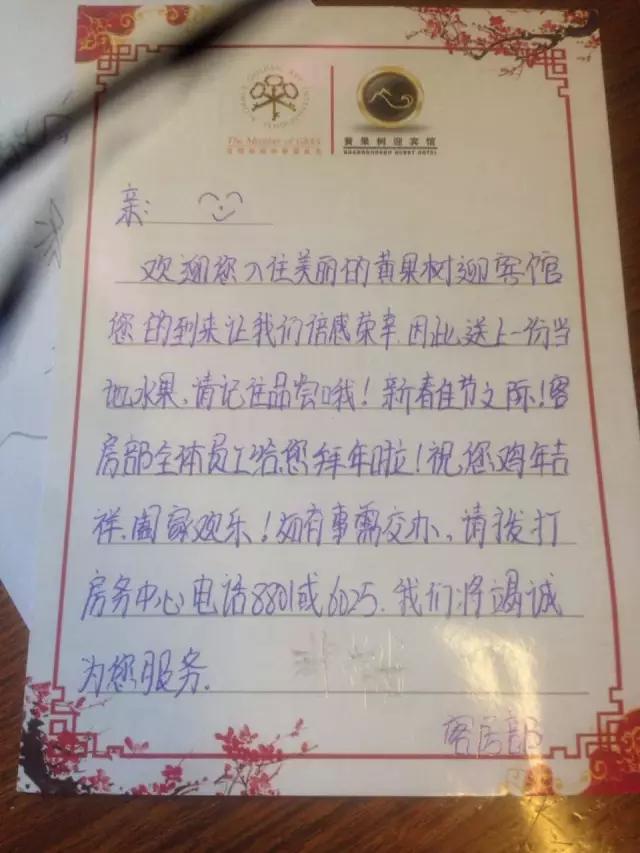 The Member of GHSA
黄果树迎宾馆
HUANGGUOSHU GUEST HOTEL
亲:
欢迎您入住美丽的黄果树迎宾馆
您的到来让我们倍感荣幸.因此送上一份当
地水果,请记住品尝哦!新春佳节之际!客
房部全体员工给您拜年啦!祝您鸡年吉
祥,阖家欢乐!如有事需交办,请拨打
房务中心电话8801或6025.我们将竭诚
为您服务.
客房部